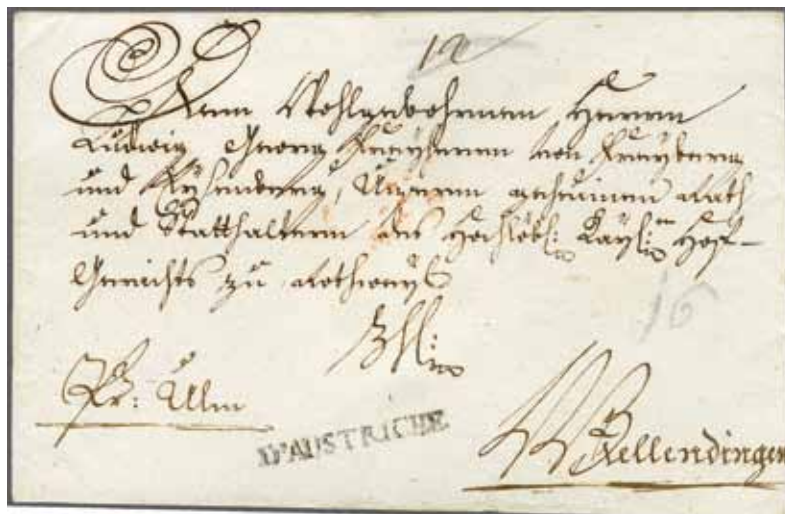 12
Dem Wohlgebohrnen Herrn
Ludwig Georg Freyherrn von Freyberg
und Eysenberg, Unserm geheimen Rath
und Statthaltern des Hochlöbl: Kaysl:n Hof-
Gerichts zu Rothweyl
16
Pr: Ulm
D'AUSTRICHE
Wellendingen